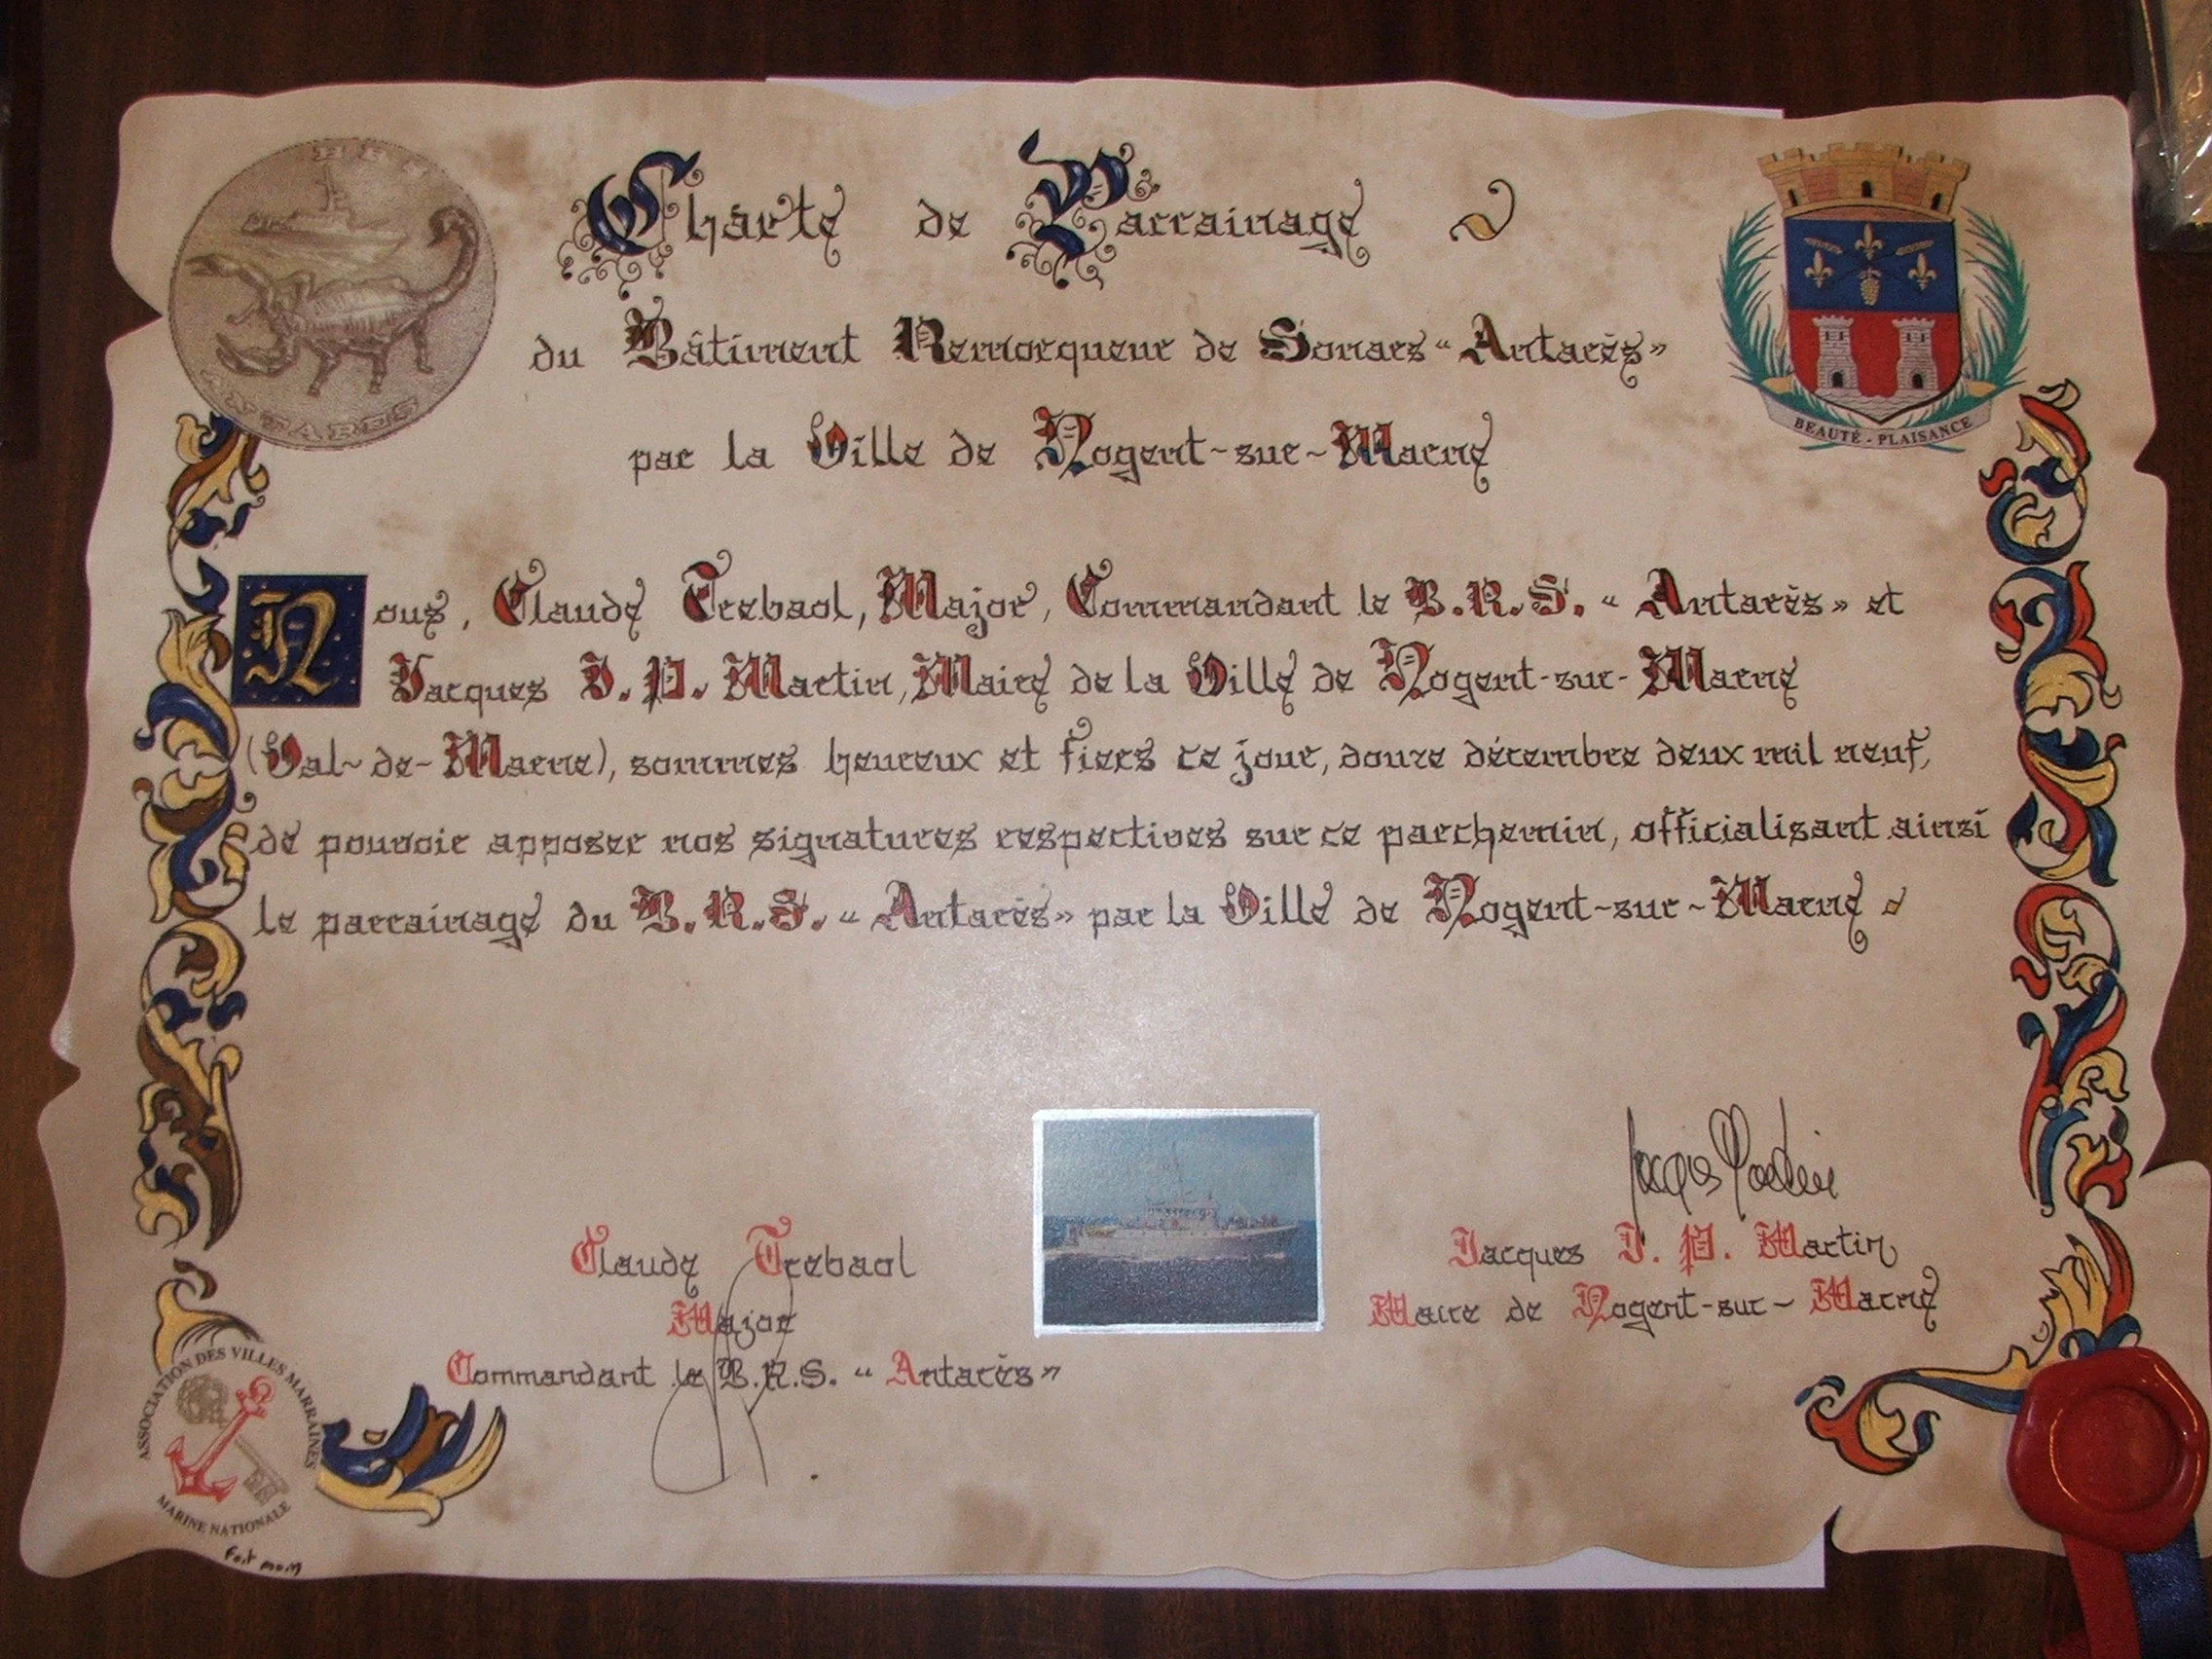 Charte de Parrainage
du Bâtiment Remorqueur de Sonars "Antarès"
par la Ville de Nogent-sur-Marne
ANTARES
BEAUTÉ - PLAISANCE
Nous, Claude Trebaol, Major, Commandant le B.R.S. "Antarès" et
Jacques J. P. Martin, Maire de la Ville de Nogent-sur-Marne
(Val-de-Marne), sommes heureux et fiers ce jour, douze décembre deux mil neuf,
de pouvoir apposer nos signatures respectives sur ce parchemin, officialisant ainsi
le parrainage du B.R.S. "Antarès" par la Ville de Nogent-sur-Marne
Jacques Martin
Claude Trebaol
Major
Commandant le B.R.S. "Antarès"
Jacques J. P. Martin
Maire de Nogent-sur-Marne
ASSOCIATION DES VILLES MARRAINES
MARINE NATIONALE
Fait main